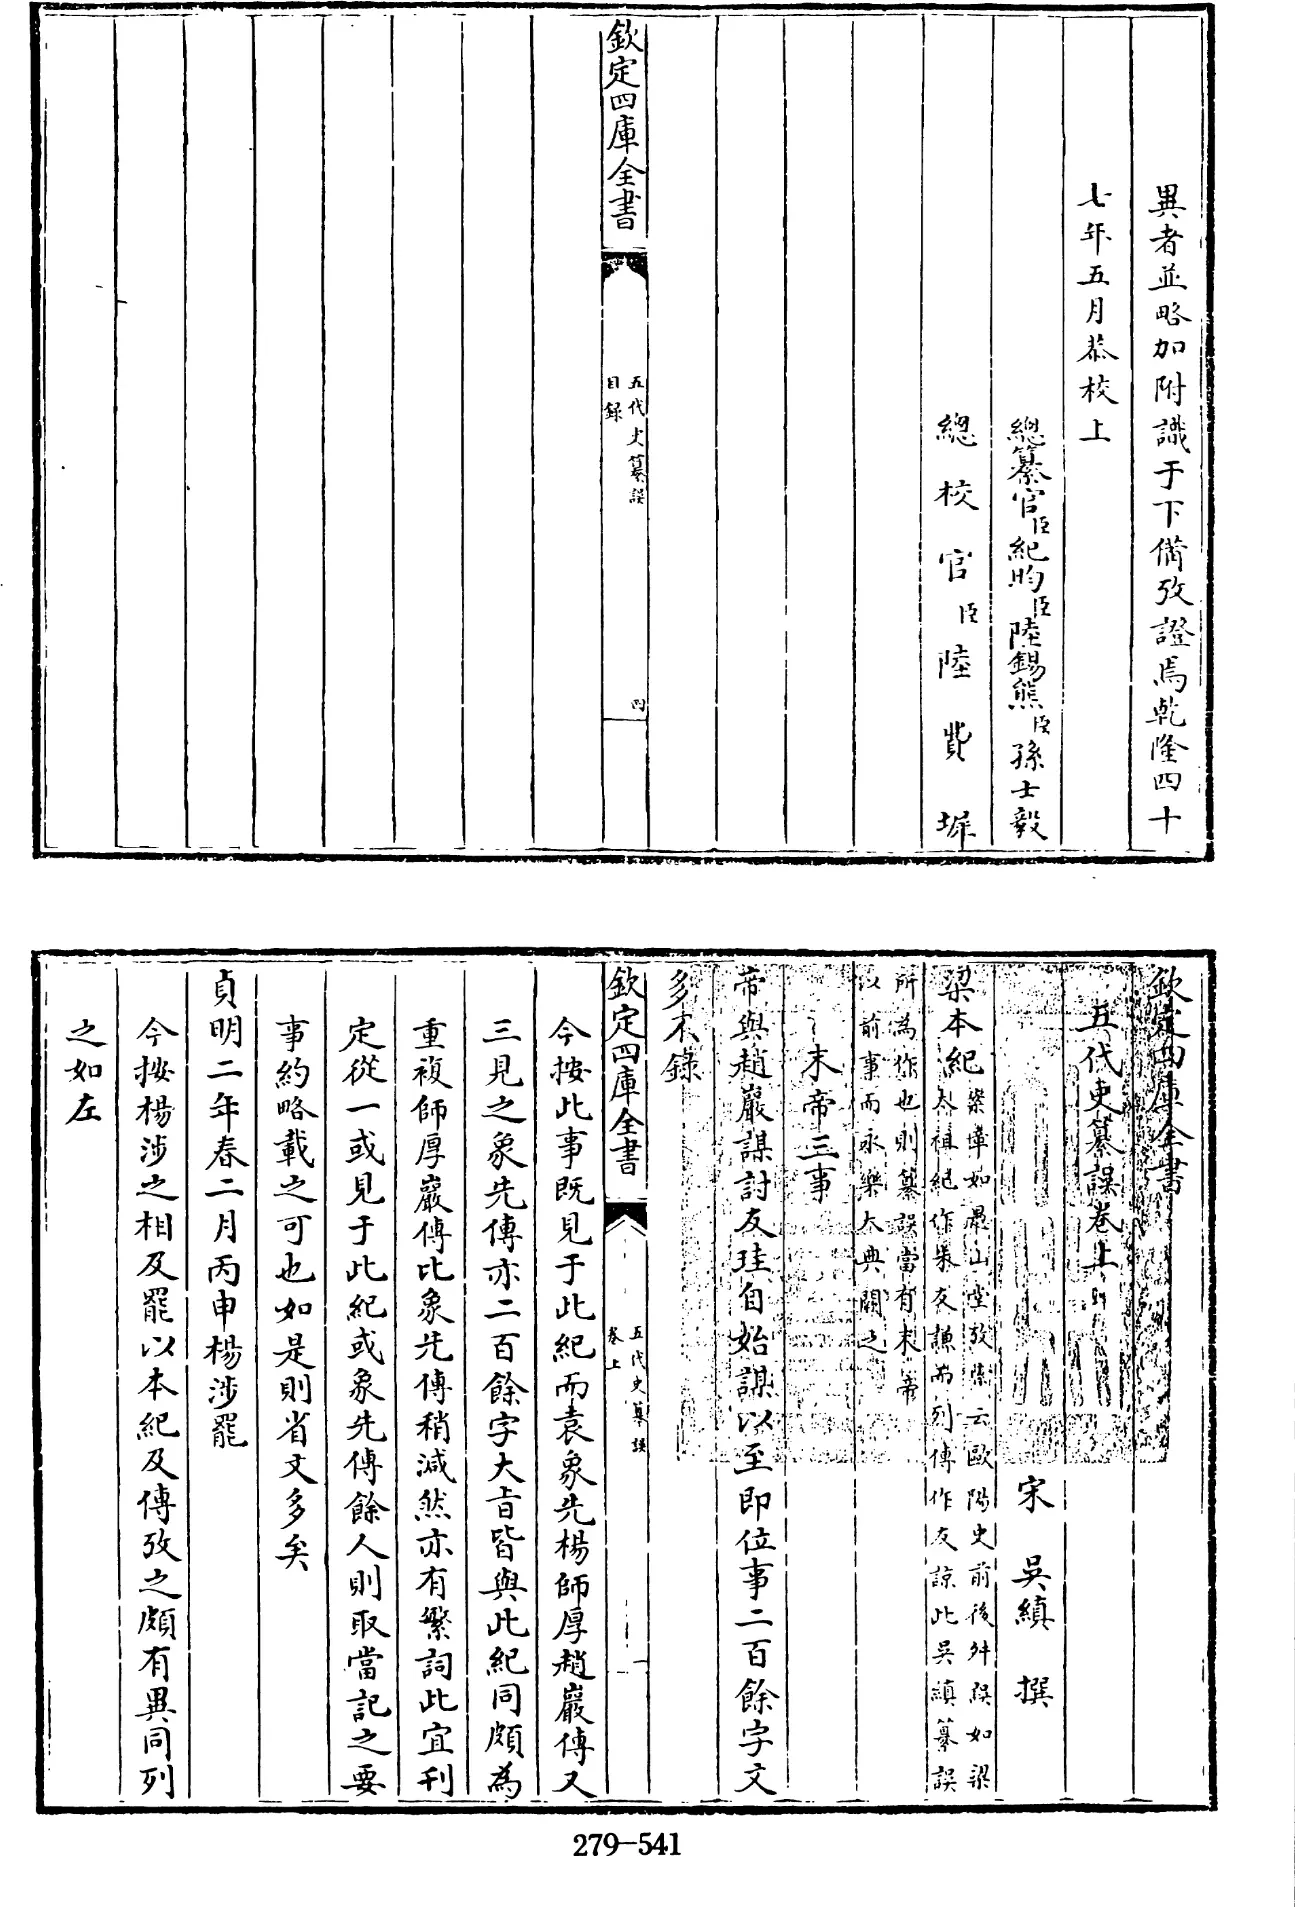 異者並略加附識于下備攷證焉乾隆四十
七年五月恭校上
總纂官臣紀昀臣陸錫熊臣孫士毅
總校官臣陸費墀
欽定四庫全書
五代史纂誤
目錄
四
欽定四庫全書
五代史纂誤卷上
宋 吳縝 撰
梁本紀
案章如愚山堂攷索云歐陽史前後舛誤如梁
太祖紀作朱友謙而列傳作友諒此吳縝纂誤
所為作也則纂誤當有末帝
以前事而永樂大典闕之
末帝三事
帝與趙巖謀討友珪自始謀以至即位事二百餘字文
多不錄
欽定四庫全書
五代史纂誤
卷上
一
今按此事既見于此紀而袁象先楊師厚趙巖傳又
三見之象先傳亦二百餘字大旨皆與此紀同頗為
重複師厚巖傳比象先傳稍減然亦有繁詞此宜刊
定從一或見于此紀或象先傳餘人則取當記之要
事約略載之可也如是則省文多矣
貞明二年春二月丙申楊涉罷
今按楊涉之相及罷以本紀及傳攷之頗有異同列
之如左
279-541